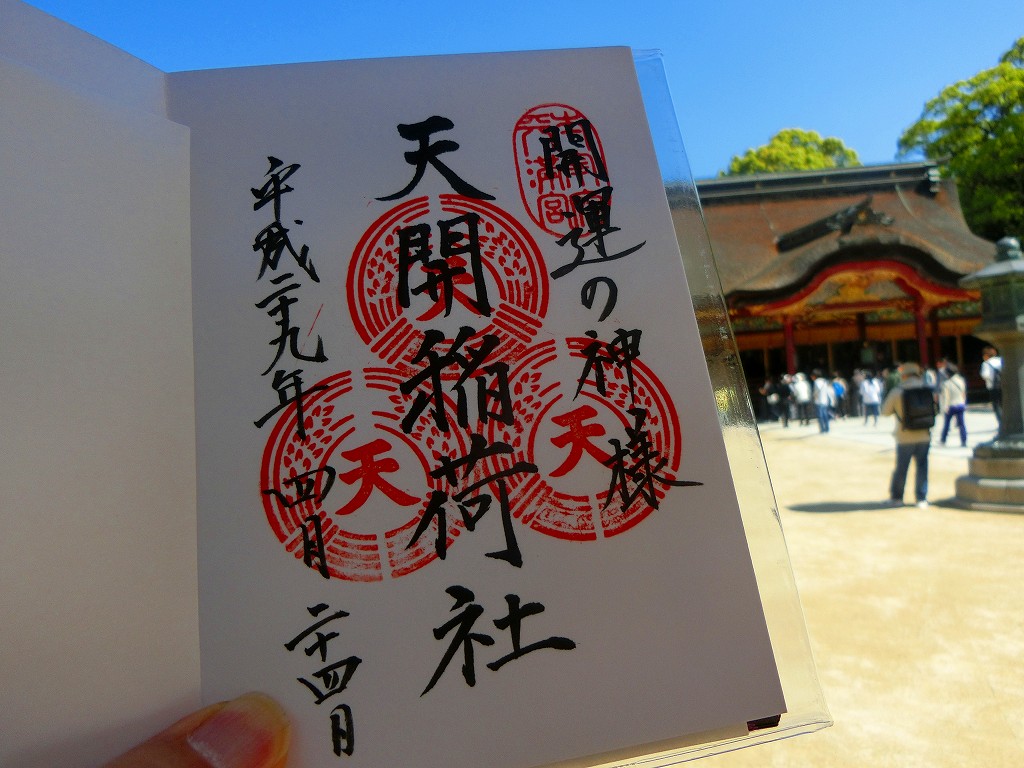 天満宮
開運の神様
天開稲荷社
天
天
平成二十九年 四月 二十四日